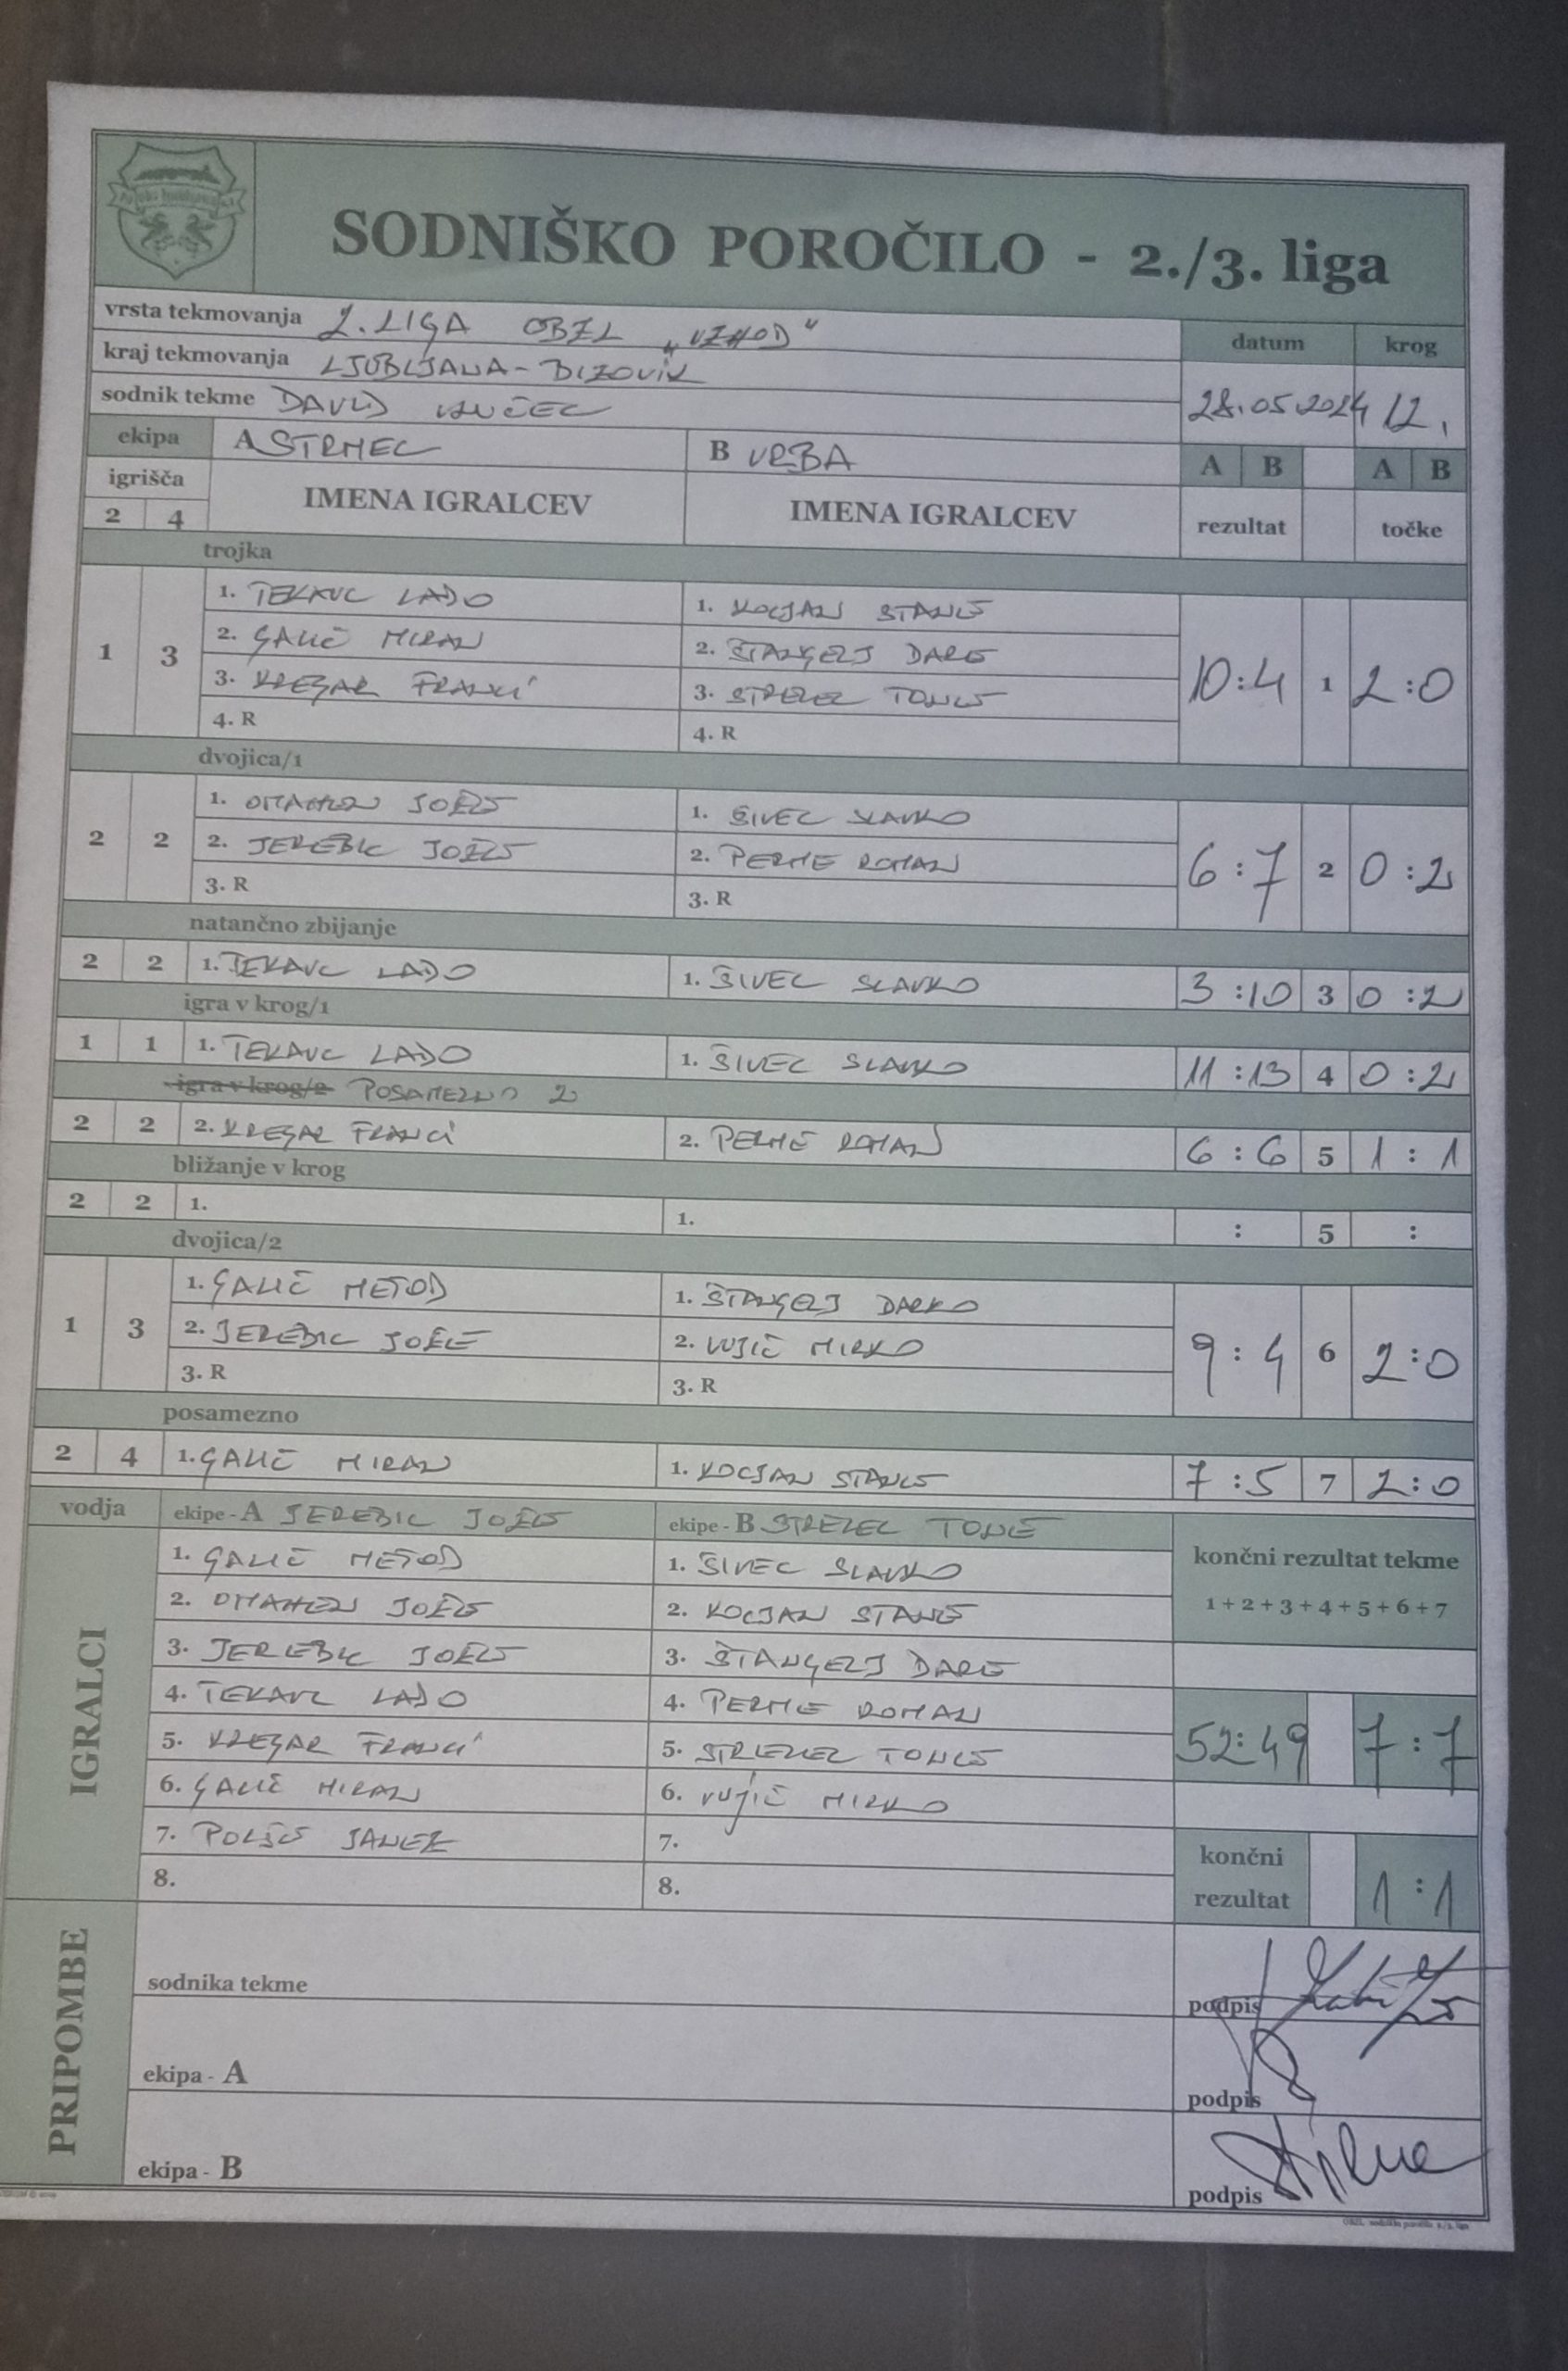 SODNIŠKO POROČILO - 2./3. liga
vrsta tekmovanja 2. LIGA OBZL „VZHOD“
kraj tekmovanja LJUBLJANA - BIZOVIK
sodnik tekme DAVID
datum krog
28.05.2024 12.
ekipa A STRMEC B VRBA A B A B
igrišča IMENA IGRALCEV IMENA IGRALCEV rezultat točke
2 4
trojka
1 3 10:4 1 2:0
1. TEKAVC LADO 1. KOCJAN STANE
2. GALIČ MIRAN 2. ŠTANGELJ DARE
3. KREGAR FRANCI 3. STREZEL TONE
4. R 4. R
dvojica/1
2 2 6:7 2 0:2
1. OMAHEN JOŽE 1. ŠIVEC SLAVKO
2. JEREBIC JOŽE 2. PERME ROMAN
3. R 3. R
natančno zbijanje
2 2 1. TEKAVC LADO 1. ŠIVEC SLAVKO 3:10 3 0:2
igra v krog/1
1 1 1. TEKAVC LADO 1. ŠIVEC SLAVKO 11:13 4 0:2
igra v krog/2 POSAMEZNO 2
2 2 2. KREGAR FRANCI 2. PERME ROMAN 6:6 5 1:1
bližanje v krog
2 2 1. 1. : 5 :
dvojica/2
1 3 9:4 6 2:0
1. GALIČ METOD 1. ŠTANGELJ DARKO
2. JEREBIC JOŽE 2. VUJIČ MIRKO
3. R 3. R
posamezno
2 4 1. GALIČ MIRAN 1. KOCJAN STANE 7:5 7 2:0
vodja ekipe - A JEREBIC JOŽE ekipe - B STREZEL TONE
IGRALCI
1. GALIČ METOD 1. ŠIVEC SLAVKO
2. OMAHEN JOŽE 2. KOCJAN STANE
3. JEREBIC JOŽE 3. ŠTANGELJ DARE
4. TEKAVC LADO 4. PERME ROMAN
5. KREGAR FRANCI 5. STREZEL TONE
6. GALIČ MIRAN 6. VUJIČ MIRKO
7. POLJŠ JANEZ 7.
8. 8.
končni rezultat tekme
1 + 2 + 3 + 4 + 5 + 6 + 7
52:49 7:7
končni
rezultat 1:1
PRIPOMBE
sodnika tekme podpis
ekipa - A podpis
ekipa - B podpis